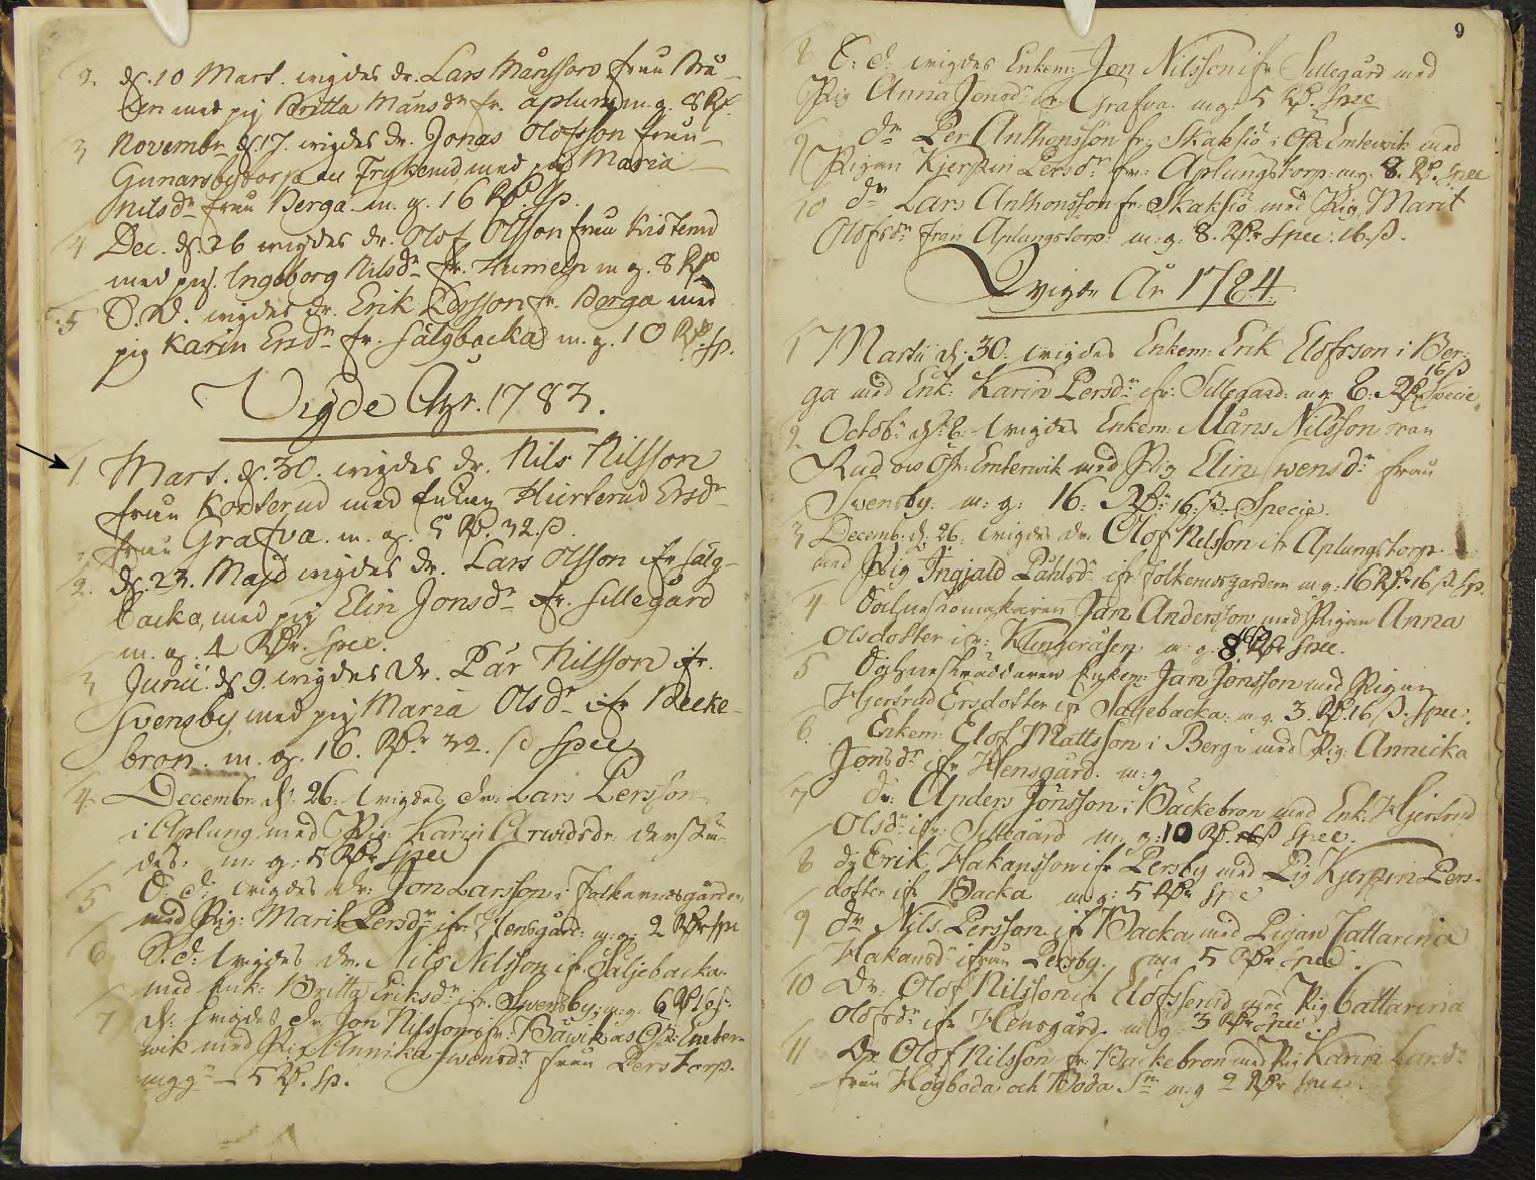 2. d. 10 Mart. wigdes dr. Lars Månsson från Brå-
ten med pig Britta Månsdr fr. Aplung m. g. 8 Rdr.
3 Novembr d. 17. wigdes dr. Jonas Olofsson från
Gunarsbytorp av Frykerud med pig Maria
Nilsdr från Berga m. g. 16 Rdr. Sp.
4 Dec. d. 26 wigdes dr. Olof Olsson från
med pig. Ingeborg Nilsdr fr. m. g. 8 Rdr
5 D. D. wigdes dr. Erik Persson fr. Berga med
pig Karin Ersdr fr. Sälgbacka m. g. 10 Rdr. Sp.
Vigde Åhr. 1783.
1. Mart. d. 30. wigdes dr. Nils Nilsson
från Korterud med Enkan Ersdr
från Grafva. m. g. 5 Rdr. 32. ß.
2. d. 23. Maji wigdes dr. Lars Olsson ifr Sälg-
backa, med pig Elin Jonsdr fr. Sillegård
m. g. 4 Rdr. Spec.
3 Junii. d. 9. wigdes Dr. Pär Nilsson ifr.
Svensby, med pig Maria Olsdr ifr Becke-
bron. m. g. 16. Rdr 32. ß Spec
4. Decembr. d. 26. wigdes dr: Lars Persson
i Aplung med Pig: Karin Arwidsdr derstä-
des. m: g: 5 Rdr Spec
5 E. d: wigdes dr: Jon Larsson i Folkernsgården
med Pig: Marit Persdr ifr Hensgård: m: g: 2 Rdr Spe
6 E. d: wigdes dr. Nils Nilsson ifr. Säljebacka
med Enk: Britta Eriksdr fr. Svensby: m: g: 6 Rdr 16 ß
7 d: wigdes dr Jon Nilsson fr: i Öst: Emter-
wik med Pig Annika Swensdr från Perstorp.
mgg - 5 Rdr. Sp.
9
8 E. d: wigdes Enkem: Jon Nilsson ifr Sillegård med
Pig Anna Jonsdr fr: Grafva. mg: 5 Rdr. Spec
9 dr Per Anthonsson fr: Skaksiö i Öst Emterwik med
Pigan Kjerstin Larsdr fr: Aplungstorp: mg: 8. Rdr. Spec
10 dr Lars Anthonsson fr: Skaksiö med Pig Marit
Olofsdr från Aplungstorp: m: g: 8. Rdr Spec: 16. ß.
Wigde År 1784.
1 Martii d. 30. wigdes Enkem: Erik Elofsson i Ber-
16 ß
ga med Enk: Karin Persdr ifr: Sillegård: mg: 6: Rdr Specie
2. Octobr d: 6. wigdes Enkem: Måns Nilsson från
Rud Öst: Emterwik med Pig Elin Swensdr från
Svensby. m: g: 16: Rdr 16: ß. Specie.
3 Decemb: d: 26: wigdes dr: Olof Nilsson ifr Aplungstorp
med Pig Ingiald Påhlsdr ifr Folkernsgården m: g: 16 Rdr 16 ß. Sp.
4 Jan Andersson med Pigan Anna
Olsdotter ifr: Klingeråsen m: g. 8 Rdr Spec.
5 Enkem: Jan Jonsson med Pigan
Hjertrud Ersdotter ifr Säljebacka: m: g: 3. Rdr. 16 ß. Spec:
6. Enkem: Elof Mattsson i Berga med Pig: Annicka
Jonsdr ifr Hensgård. m: g
7 dr: Anders Jönsson i Bäckebron med Enk: Hjertrud
Olsdr ifr: Sillegård m: g: 10 Rdr. 16 ß Spec.
8 dr Erik Hakansson ifr Persby med Pig Kjerstin Pers-
dotter ifr Backa m: g: 5 Rdr Spe
9 dr Nils. Persson ifr Backa med Pigan Cattarina
Hakansdr ifrån Persby. mg 5 Rdr Spec.
10 Dr: Olof Nilsson ifr Elofsserud med Pig Cattarina
Olofsdr ifr Hensgård. m: g: 3 Rdr Spec.
11 Dr Olof Nilsson fr: Bäckebron med Pig Karin Larsdr
från Högboda och Boda Sn m: g 2 Rdr Spec.